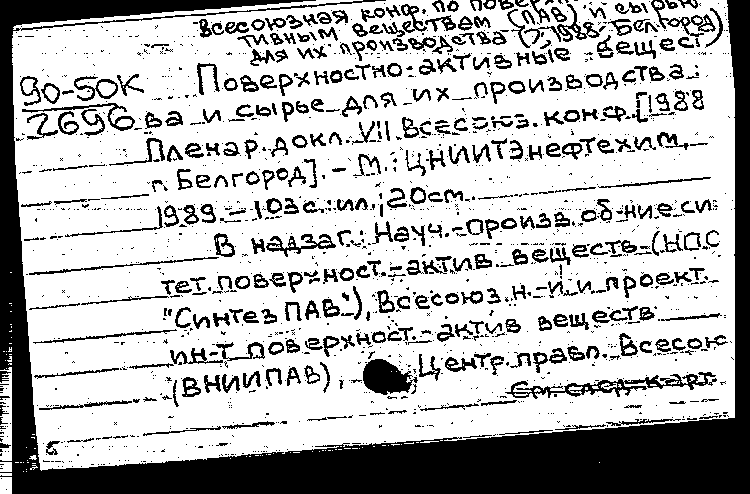 Всесоюзная конф. по поверх
тивным веществам (ПАВ) и сырью
для их производства (7, 1988, Белгород)
90-50К Поверхностно-активные вещест
2696 ва и сырье для их производства:
Пленар. докл. VII Всесоюз. конф. [1988
г. Белгород]. - М.: ЦНИИТЭнефтехим,
1989. - 103с.: ил.; 20см.
В надзаг.: Науч.-произв. об-ние син
тет. поверхност.-актив. веществ (НПО
"Синтез ПАВ"), Всесоюз. н.-и. и проект.
ин-т поверхност.-актив. веществ
(ВНИИПАВ), Центр. правл. Всесоюз
См. след. карт.